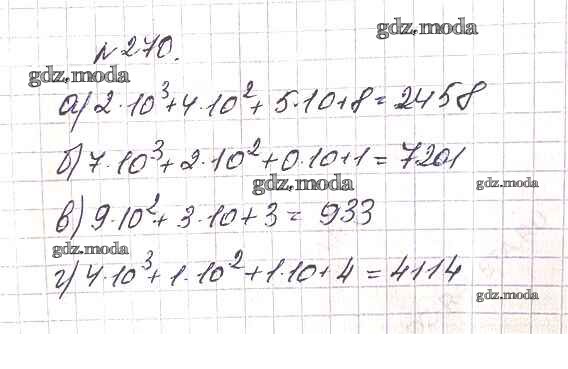 gdz.moda
№270.
gdz.moda
а) 2·10³+4·10²+5·10+8=2458
б) 7·10³+2·10²+0·10+1=7201
gdz.moda gdz.moda
в) 9·10²+3·10+3=933
gdz.moda
г) 4·10³+1·10²+1·10+4=4114
gdz.moda